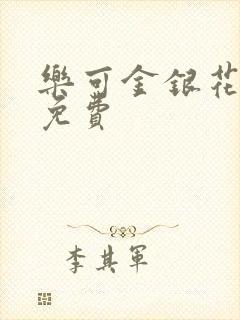 樂可金銀花
免費
李其軍